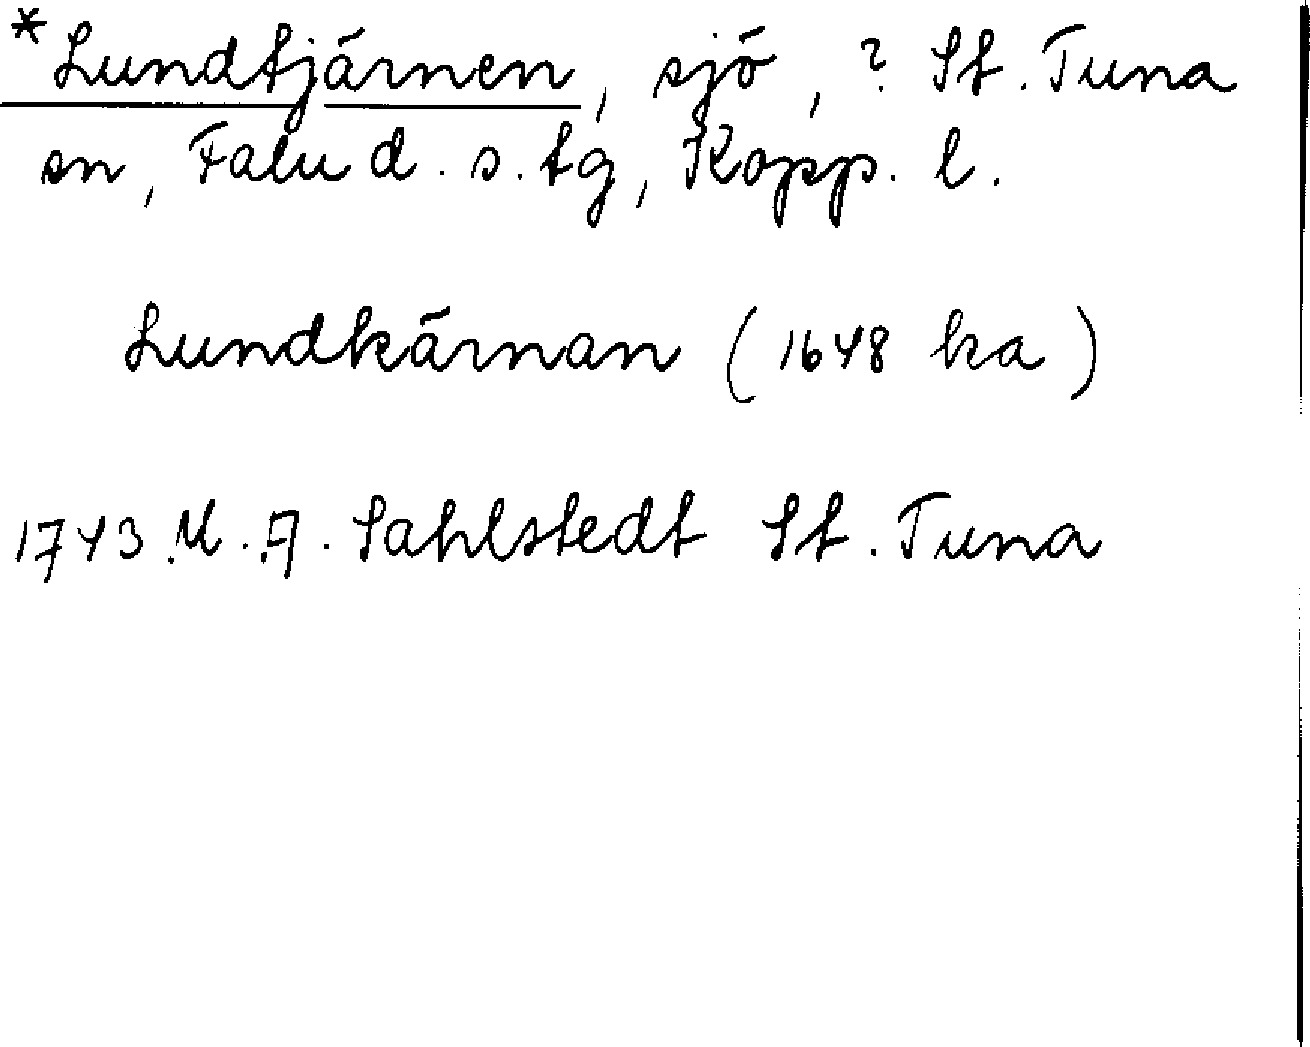 *Lundtjärnen, sjö, ? St. Tuna
sn, Falu d. s. tg, Kopp. l.
Lundkärnan (1648 ka)
1743 M. A. Sahlstedt St. Tuna